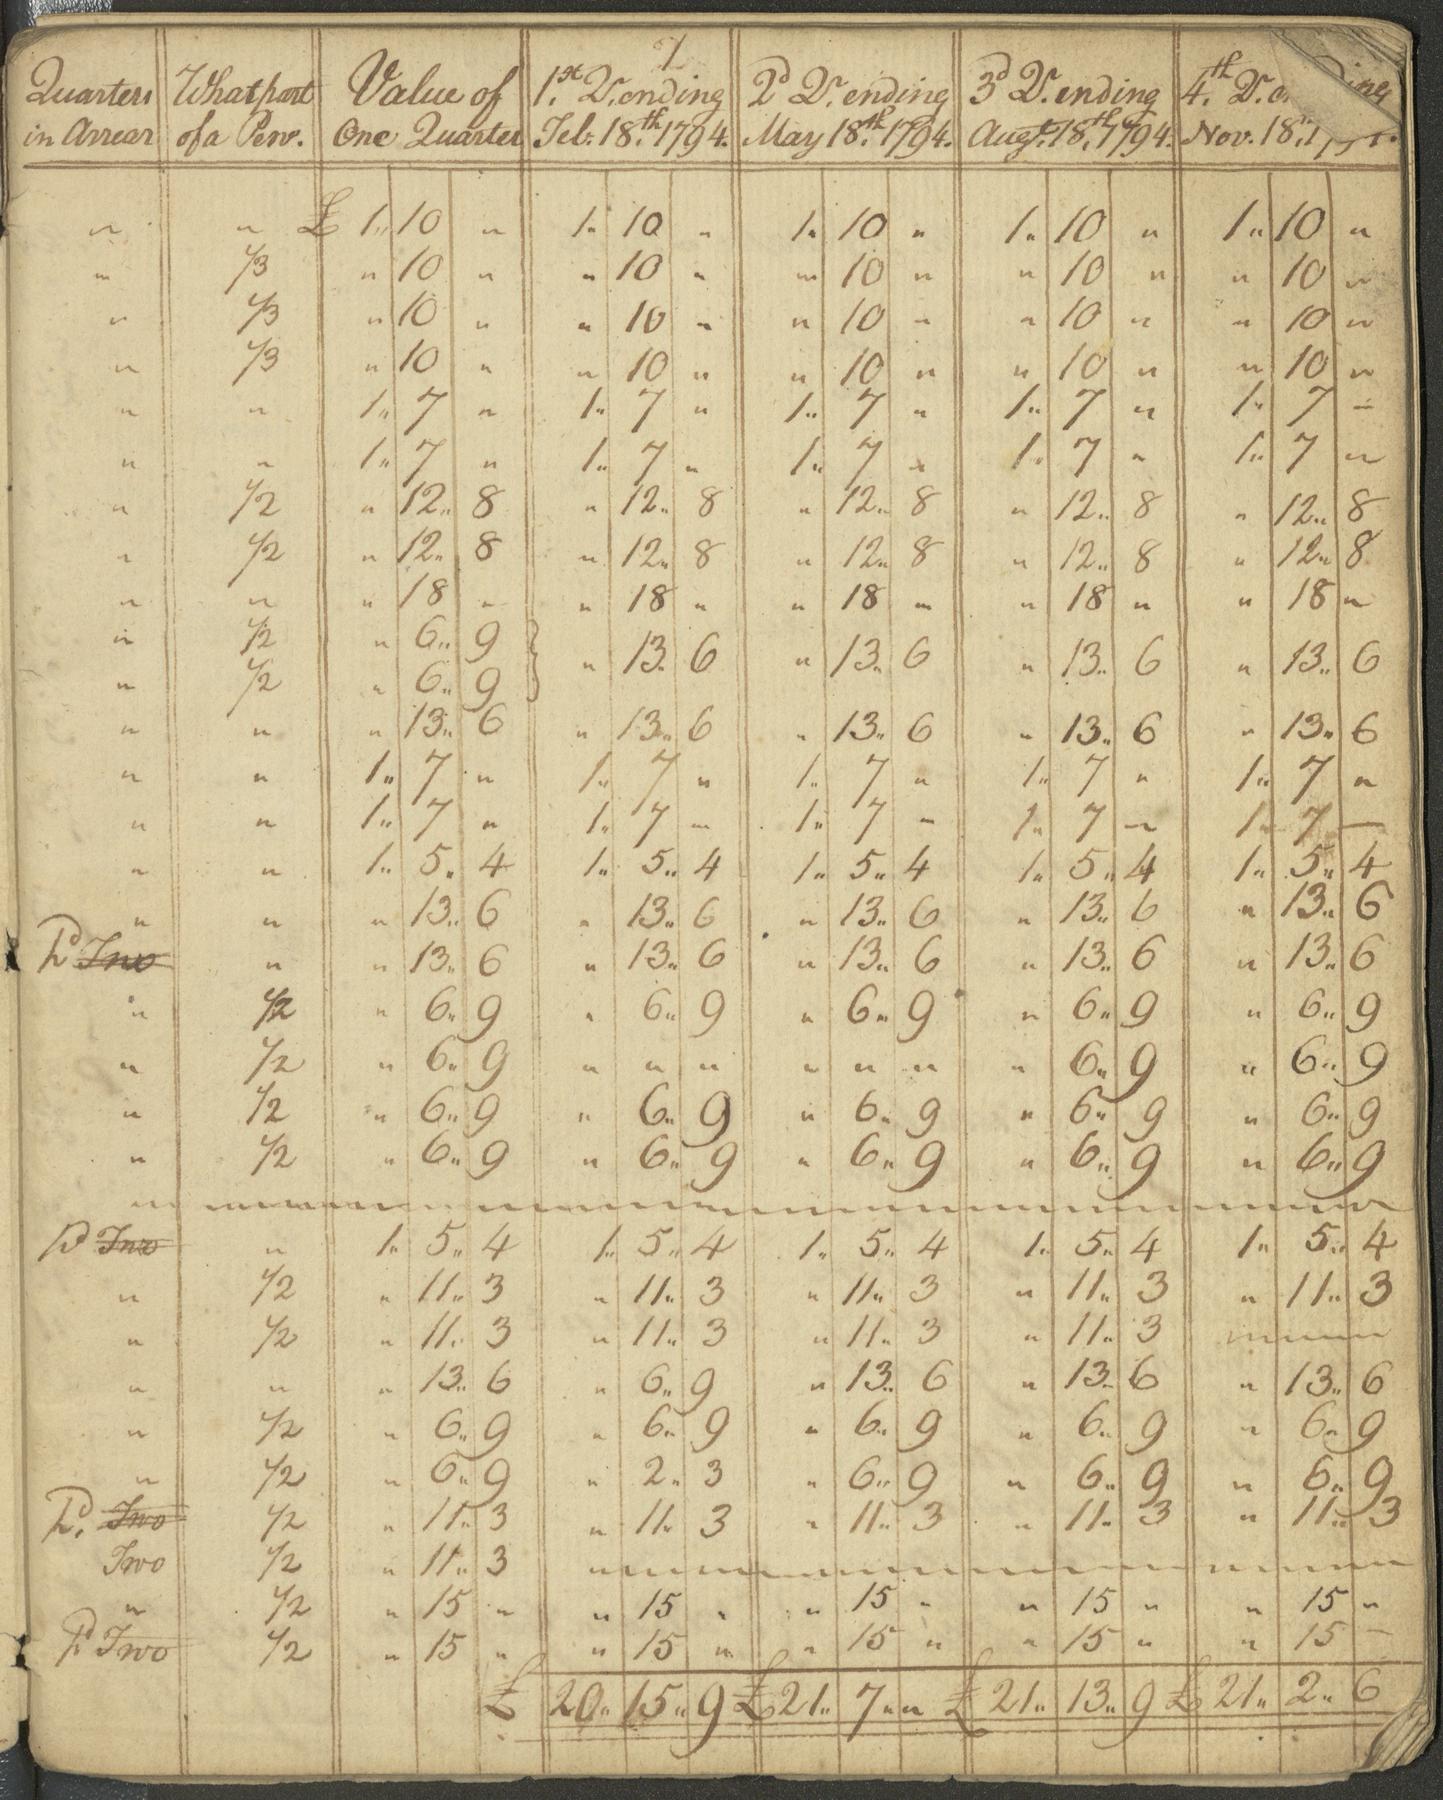 Quarters in Arrear | What part of a Pew. | Value of One Quarter | 1.st Qr. ending Feb: 18.th 1794. | 2d Qr. ending May 18.th 1794. | 3d Qr. ending Augt. 18.th 1794. | 4.th Qr. Nov. 18.
" | " | £ 1" 10 " | 1" 10 " | 1" 10 " | 1" 10 " | 1" 10 "
" | 1/3 | " 10 " | " 10 " | " 10 " | " 10 " | " 10 "
" | 1/3 | " 10 " | " 10 " | " 10 " | " 10 " | " 10 "
" | 1/3 | " 10 " | " 10 " | " 10 " | " 10 " | " 10 "
" | " | 1" 7 " | 1" 7 " | 1" 7 " | 1" 7 " | 1" 7 "
" | " | 1" 7 " | 1" 7 " | 1" 7 " | 1" 7 " | 1" 7 "
" | 1/2 | " 12" 8 | " 12" 8 | " 12" 8 | " 12" 8 | " 12" 8
" | 1/2 | " 12" 8 | " 12" 8 | " 12" 8 | " 12" 8 | " 12" 8
" | " | " 18 " | " 18 " | " 18 " | " 18 " | " 18 "
" | 1/2 | " 6" 9 } | " 13" 6 | " 13" 6 | " 13" 6 | " 13" 6
" | 1/2 | " 6" 9
" | " | " 13" 6 | " 13" 6 | " 13" 6 | " 13" 6 | " 13" 6
" | " | 1" 7 " | 1" 7 " | 1" 7 " | 1" 7 " | 1" 7 "
" | " | 1" 7 " | 1" 7 " | 1" 7 " | 1" 7 " | 1" 7 —
" | " | 1" 5" 4 | 1" 5" 4 | 1" 5" 4 | 1" 5" 4 | 1" 5" 4
" | " | " 13" 6 | " 13" 6 | " 13" 6 | " 13" 6 | " 13" 6
Pd Two | " | " 13" 6 | " 13" 6 | " 13" 6 | " 13" 6 | " 13" 6
" | 1/2 | " 6" 9 | " 6" 9 | " 6" 9 | " 6" 9 | " 6" 9
" | 1/2 | " 6" 9 | " " " | " " " | " 6" 9 | " 6" 9
" | 1/2 | " 6" 9 | " 6" 9 | " 6" 9 | " 6" 9 | " 6" 9
" | 1/2 | " 6" 9 | " 6" 9 | " 6" 9 | " 6" 9 | " 6" 9
Pd Two | " | 1" 5" 4 | 1" 5" 4 | 1" 5" 4 | 1" 5" 4 | 1" 5" 4
" | 1/2 | " 11" 3 | " 11" 3 | " 11" 3 | " 11" 3 | " 11" 3
" | 1/2 | " 11" 3 | " 11" 3 | " 11" 3 | " 11" 3 | " " "
" | " | " 13" 6 | " 6" 9 | " 13" 6 | " 13" 6 | " 13" 6
" | 1/2 | " 6" 9 | " 6" 9 | " 6" 9 | " 6" 9 | " 6" 9
" | 1/2 | " 6" 9 | " 2" 3 | " 6" 9 | " 6" 9 | " 6" 9
Pd. Two | 1/2 | " 11" 3 | " 11" 3 | " 11" 3 | " 11" 3 | " 11" 3
Two | 1/2 | " 11" 3 | " " " | " " " | " " " | " " "
" | 1/2 | " 15 " | " 15 " | " 15 " | " 15 " | " 15 "
Pd Two | 1/2 | " 15 " | " 15 " | " 15 " | " 15 " | " 15 —
£ 20" 15" 9 | £ 21" 7 " " | £ 21" 13" 9 | £ 21" 2" 6